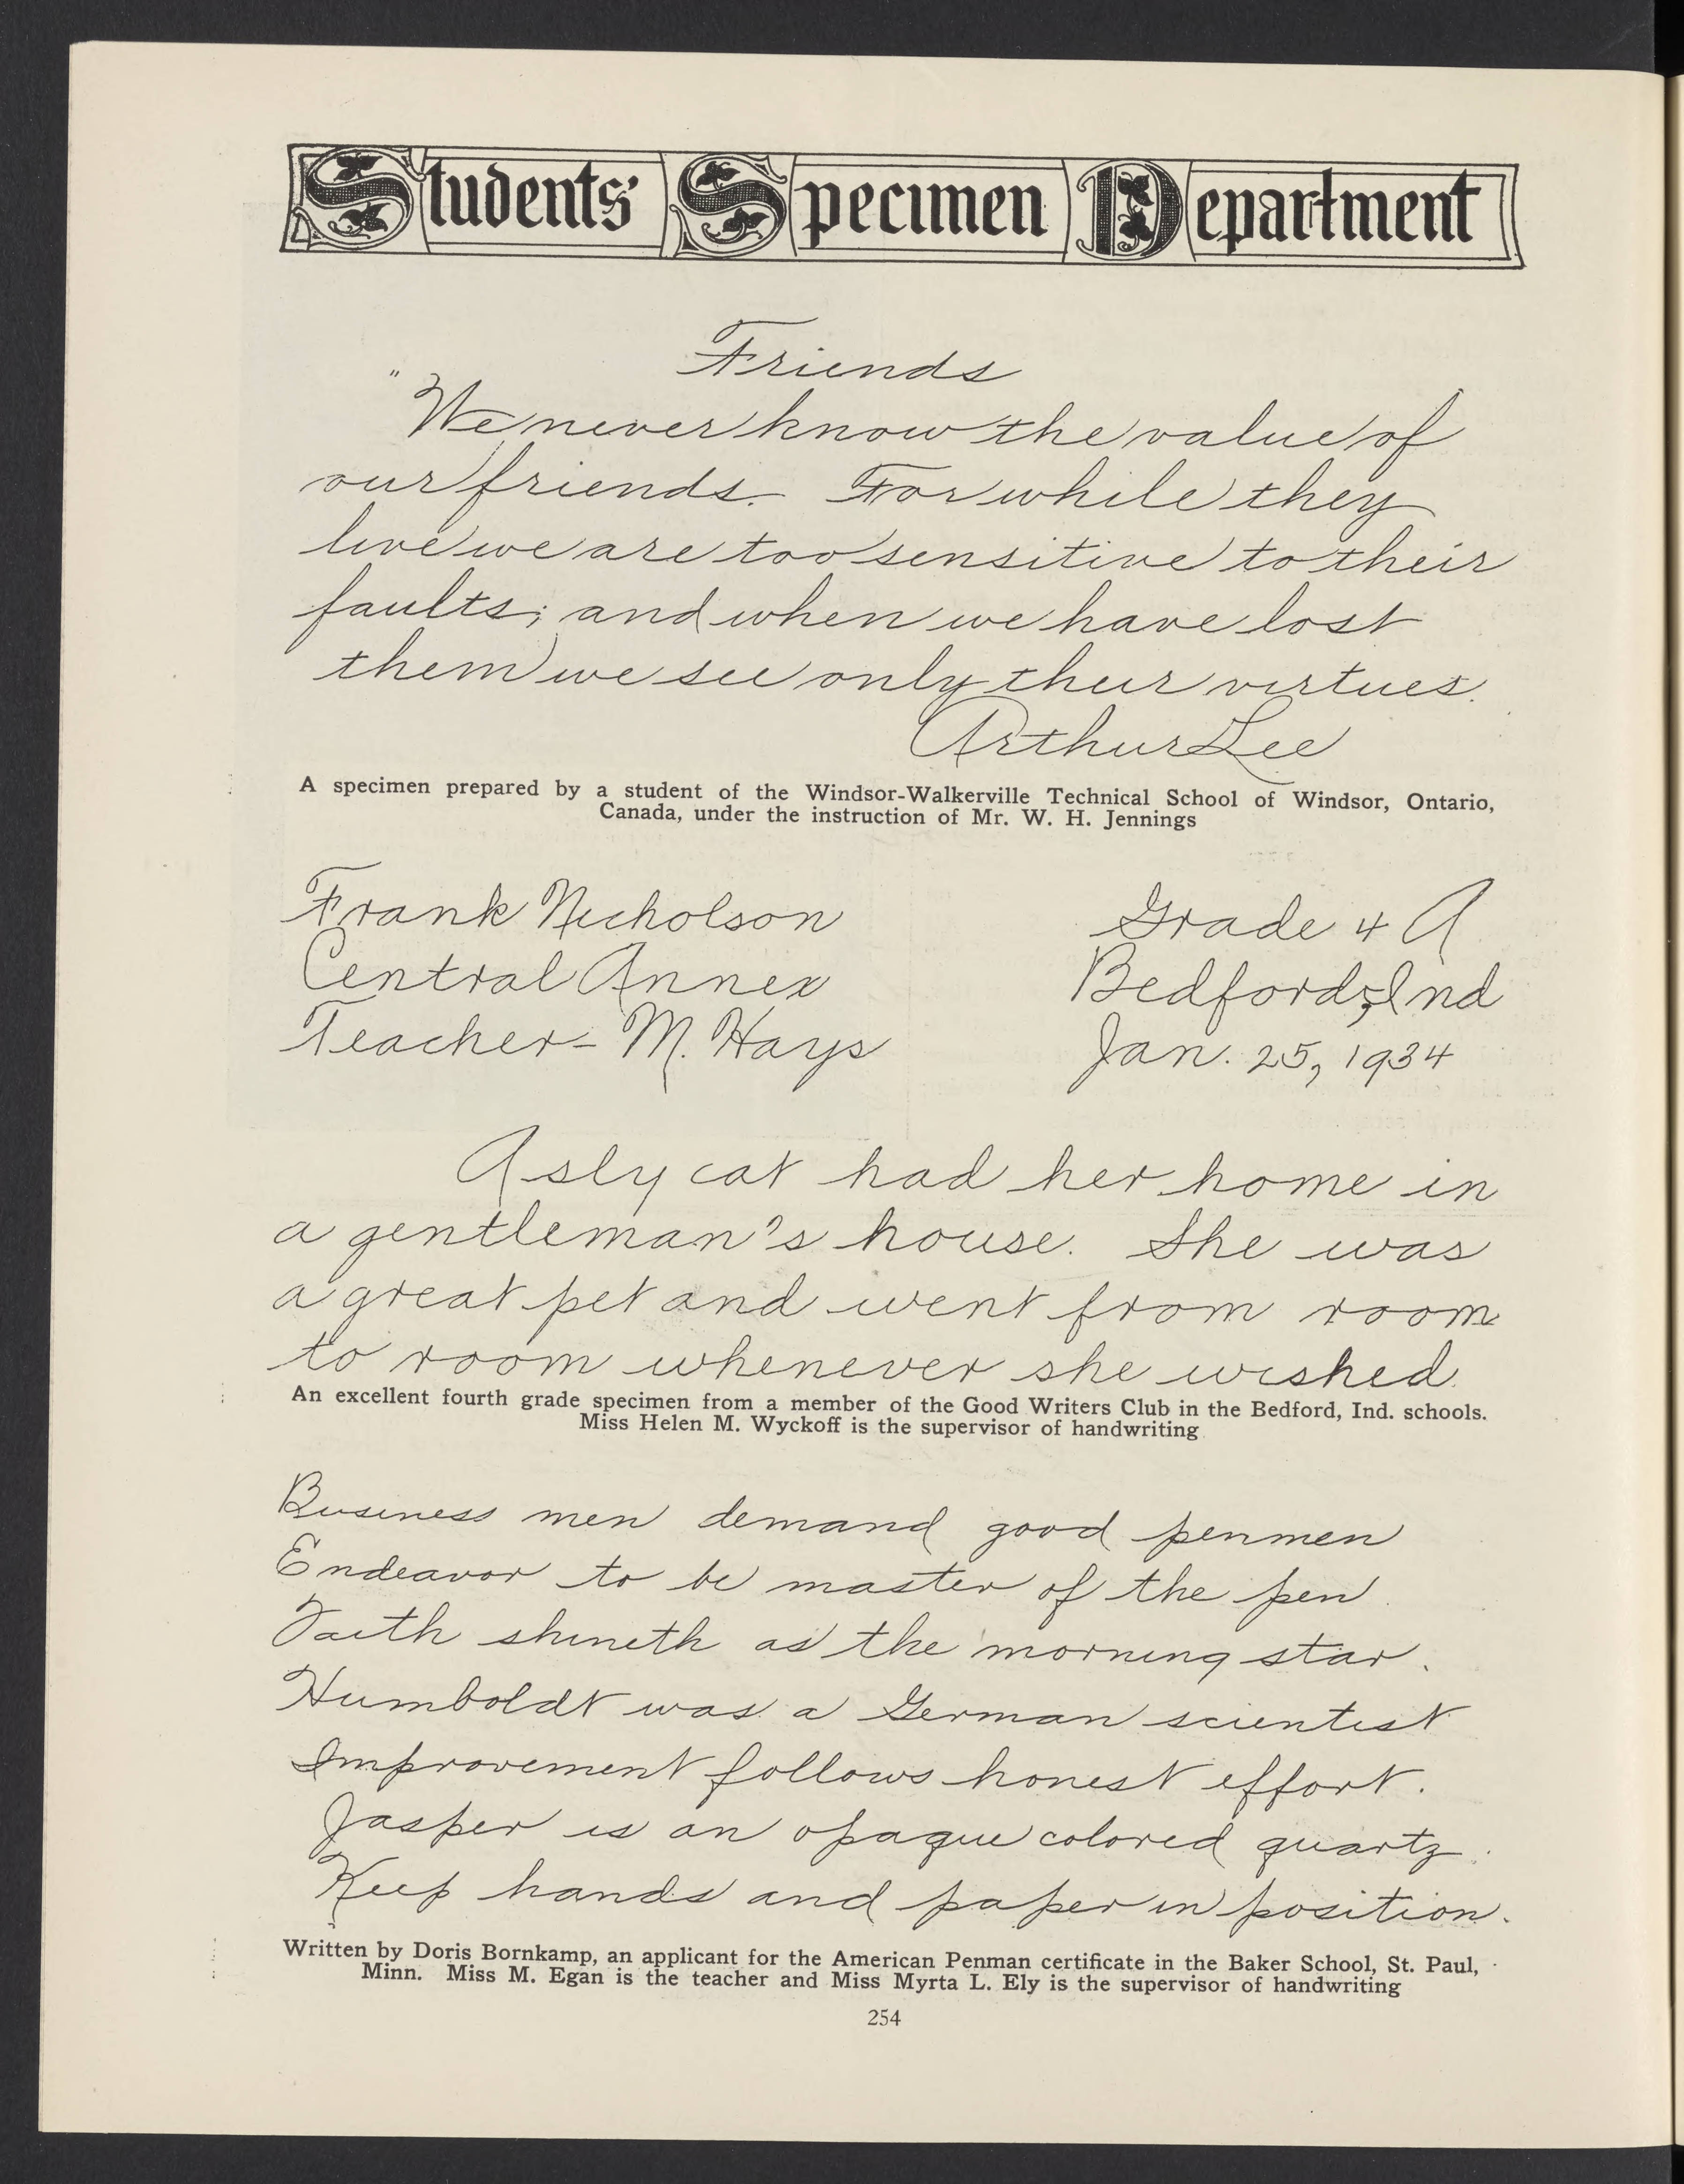 Students' Specimen Department
Friends
"We never know the value of
our friends. For while they
live we are too sensitive to their
faults; and when we have lost
them we see only their virtues.
Arthur Lee
A specimen prepared by a student of the Windsor-Walkerville Technical School of Windsor, Ontario,
Canada, under the instruction of Mr. W. H. Jennings
Frank Nicholson Grade 4 A
Central Annex Bedford, Ind
Teacher- M. Hays Jan. 25, 1934
A sly cat had her home in
a gentleman's house. She was
a great pet and went from room
to room whenever she wished.
An excellent fourth grade specimen from a member of the Good Writers Club in the Bedford, Ind. schools.
Miss Helen M. Wyckoff is the supervisor of handwriting
Business men demand good penmen
Endeavor to be master of the pen.
Faith shineth as the morning star.
Humboldt was a German scientist
Improvement follows honest effort.
Jasper is an opaque colored quartz.
Keep hands and paper in position.
Written by Doris Bornkamp, an applicant for the American Penman certificate in the Baker School, St. Paul,
Minn. Miss M. Egan is the teacher and Miss Myrta L. Ely is the supervisor of handwriting
254